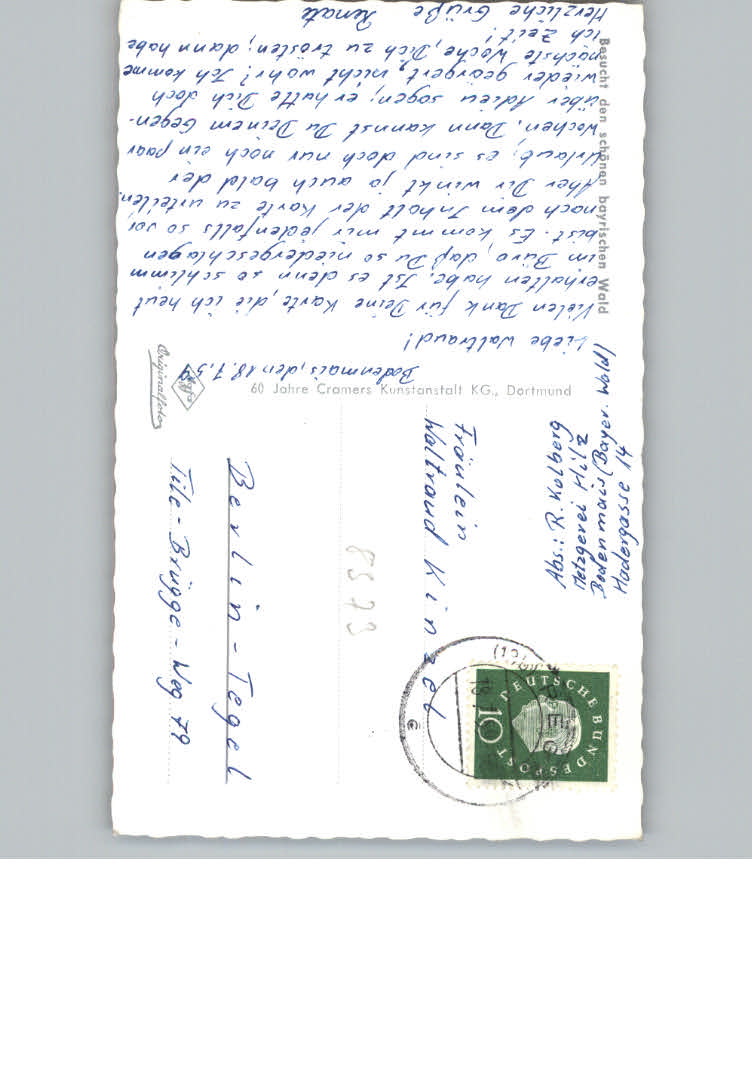 Bodenmais, den 18.7.59
Liebe Waltraud!
Vielen Dank für Deine Karte, die ich heut
erhalten habe. Ist es denn so schlimm
im Büro, daß Du so niedergeschlagen
bist. Es kommt mir jedenfalls so vor
nach dem Inhalt der Karte zu urteilen.
Aber Dir winkt ja auch bald der
Urlaub; es sind doch nur noch ein paar
Wochen. Dann kannst Du Deinem Gegen-
über Adieu sagen; er hatte Dich doch
wieder geärgert, nicht wahr? Ich komme
nächste Woche, Dich zu trösten; dann habe
ich Zeit!
Herzliche Grüße Renate
Besucht den schönen bayrischen Wald
60 Jahre Cramers Kunstanstalt KG., Dortmund
Agfa
Originalfoto
Abs.: R. Kolberg
Metzgerei Hilz
Bodenmais (Bayer. Wald)
Hadergasse 14
Fräulein
Waltraud Kinzel
Berlin-Tegel
Tile-Brügge-Weg 79
8573
DEUTSCHE BUNDESPOST
10